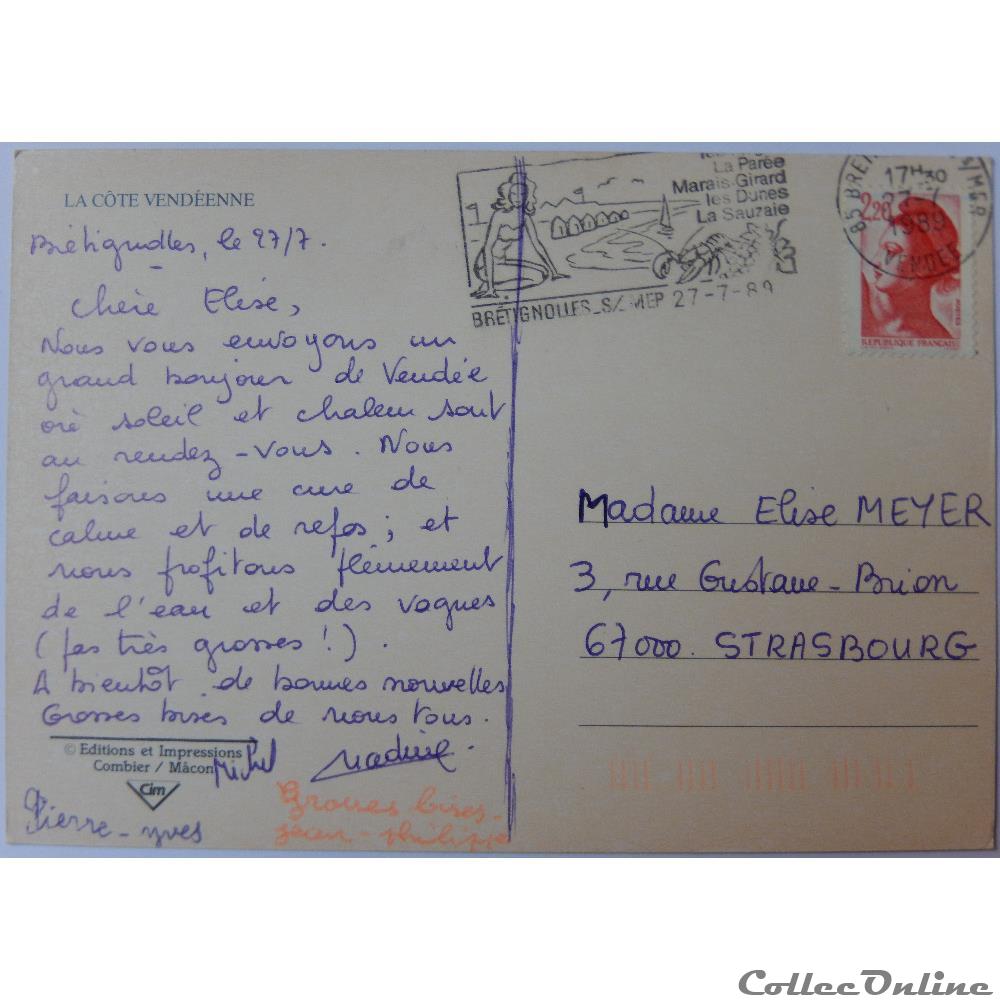 LA CÔTE VENDÉENNE
Brétignolles, le 27/7.
Chère Elise,
Nous vous envoyons un
grand bonjour de Vendée
où soleil et chaleur sont
au rendez-vous. Nous
faisons une cure de
calme et de repos ; et
nous profitons pleinement
de l'eau et des vagues
(pas très grosses !).
A bientôt de bonnes nouvelles
Grosses bises de nous tous.
© Editions et Impressions
Combier / Mâcon
Cim
Michel
Nadine.
Pierre-yves
Grosses bises-
jean-philippe
La Parée
Marais-Girard
les Dunes
La Sauzaie
BRÉTIGNOLLES_S/_MER 27-7-89
85 BRET S/MER
17H30
27-7
1989
VENDEE
2,20
REPUBLIQUE FRANÇAISE
Madame Elise MEYER
3, rue Gustave-Brion
67000. STRASBOURG
CollecOnline